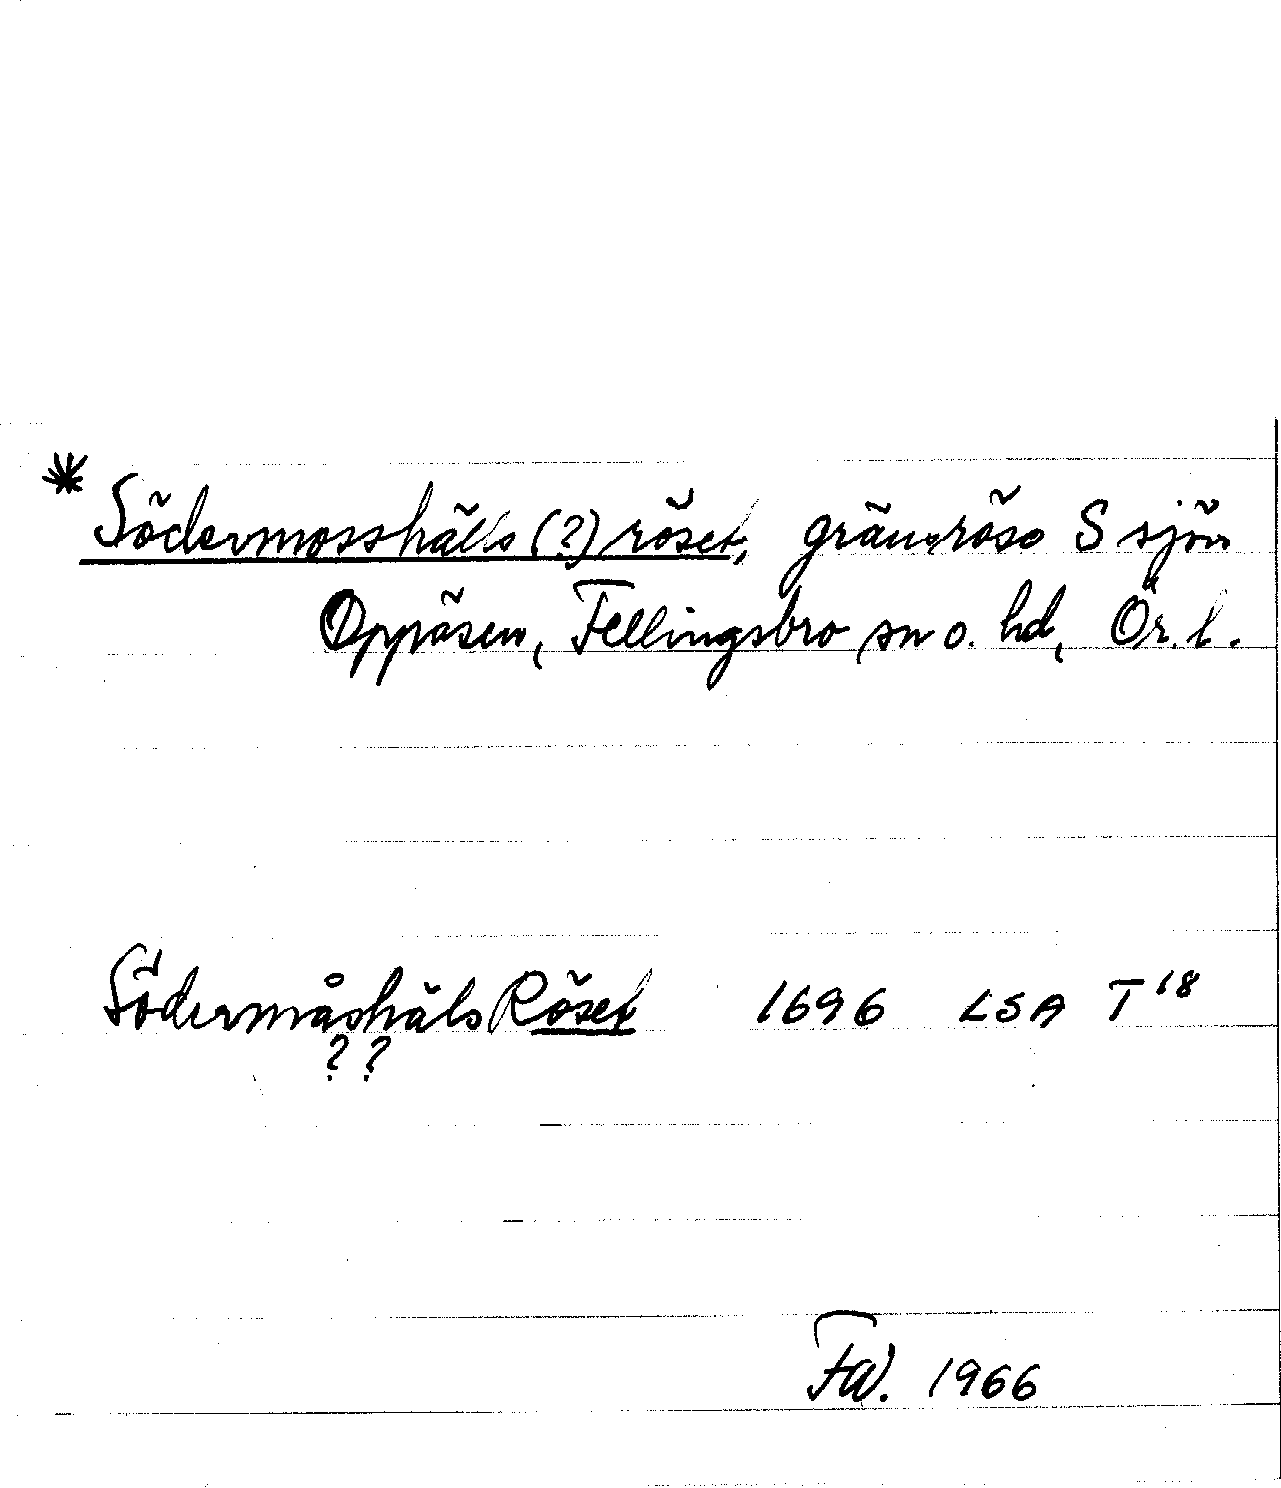 * Södermosshälls (?) röset, gränsröse S sjön
Oppåsen, Fellingsbro sn o. hd, Ör. l.
Södermåshäls Röset 1696 LSA T 18
? ?
FW. 1966